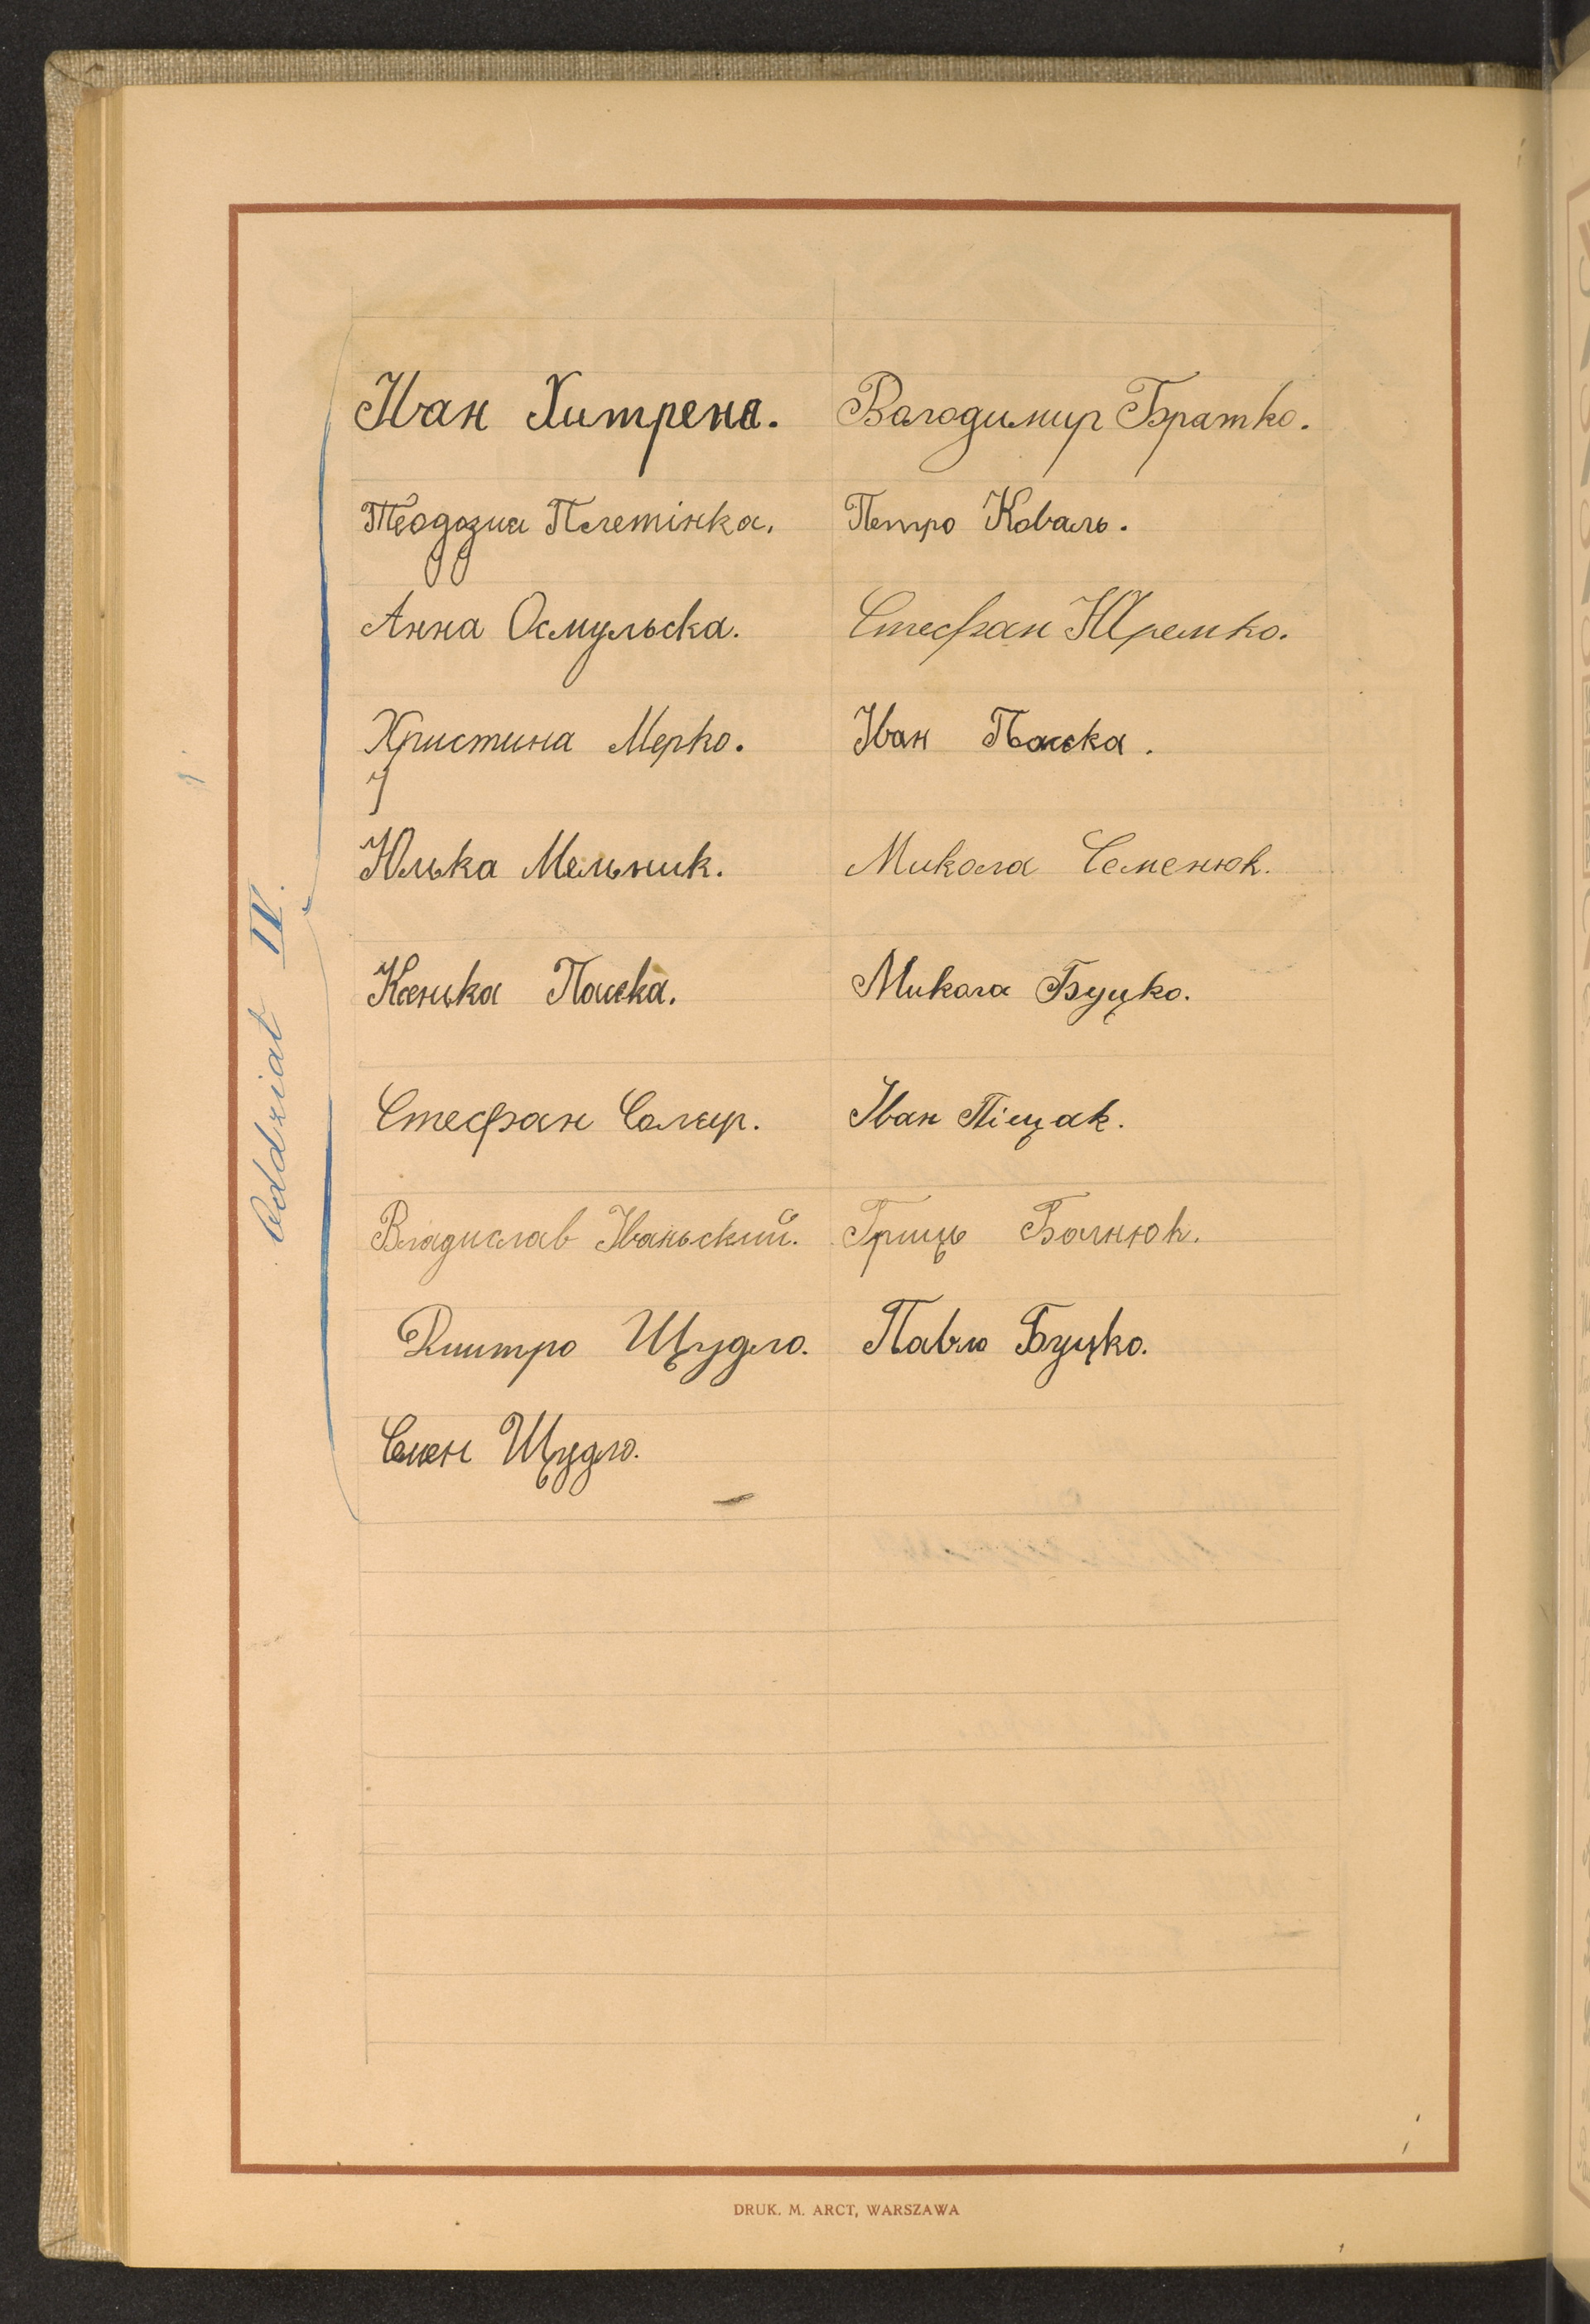 Oddział IV.
Іван Хитрена.
Теодозия Плетінка.
Анна Осмульска.
Христина Мерко.
Юлька Мельник.
Ксенька Паска.
Стефан Саляр.
Владислав Іваньский.
Дмитро Щудло.
Семен Щудло.
Володимир Братко.
Петро Коваль.
Стефан Яремко.
Іван Паска.
Микола Семенюк.
Микола Буцко.
Іван Піщак.
Гриць Балнюк.
Павло Буцко.
DRUK. M. ARCT, WARSZAWA